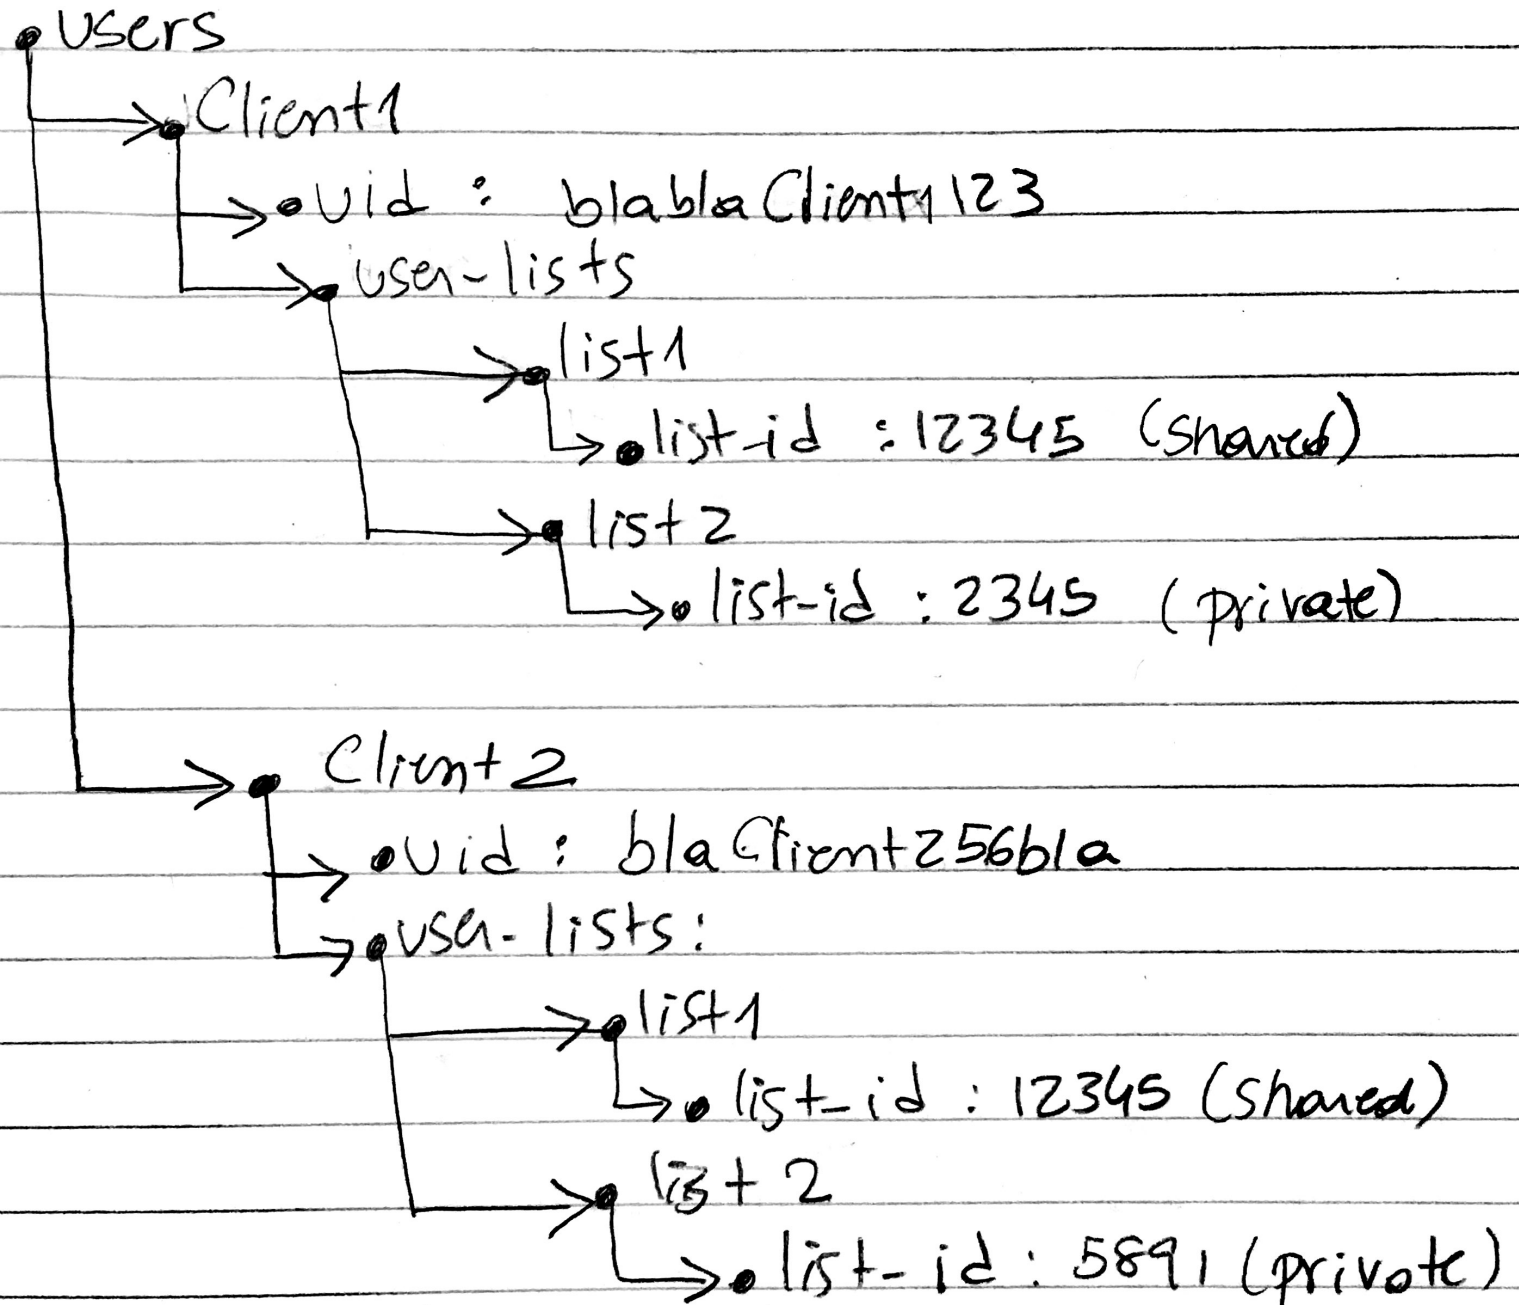 users
Client1
uid : blablaClient1123
user-lists
list1
list-id : 12345 (shared)
list 2
list-id : 2345 (private)
Client 2
uid : blaClient256bla
user-lists:
list1
list-id : 12345 (shared)
list 2
list-id : 5891 (private)